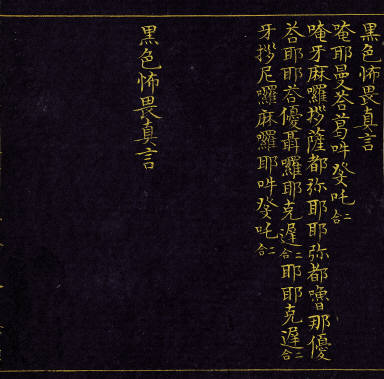 黑色怖畏真言
唵耶曼荅葛吽癹吒二合
唵牙麻囉拶薩都弥耶耶弥都嚕那優
荅耶耶荅優聶囉耶克遅二合耶耶克遅二合
牙拶尼囉麻囉耶吽癹吒二合
黑色怖畏真言